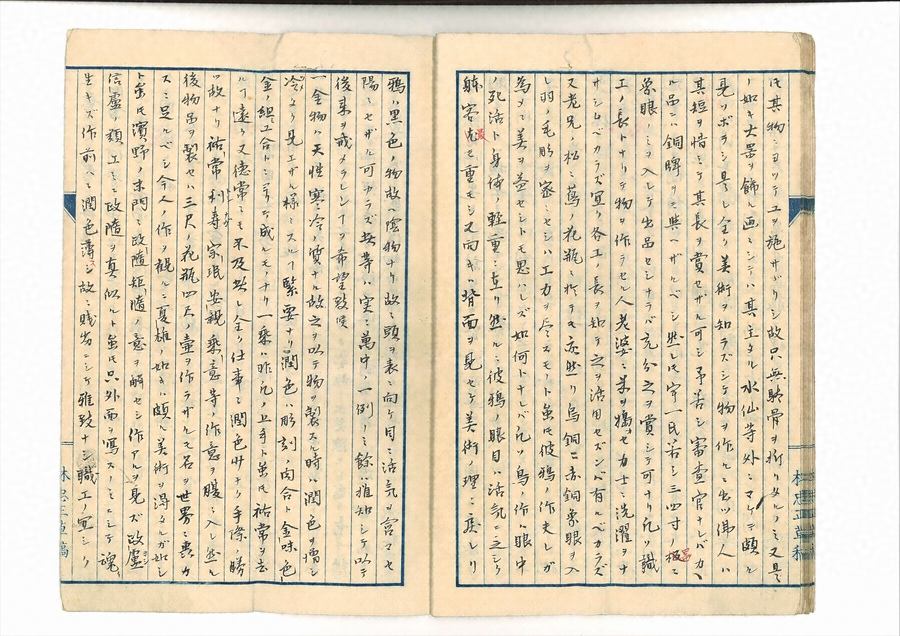 氏其物ニヨツテ工ヲ施サザリシ故只無駄骨ヲ折リタルノミ又是
ノ如キ古器ヲ飾ル画ニシテハ其主タル水仙等外ニマケテ頗ル
見ツボラシ是レ全ク美術ヲ知ラズシテ物ヲ作ルニ出ツ佛人ハ
其短ヲ惜ミテ其長ヲ賞セザル可シ予若シ審査官ナレバカヽ
ル品ニハ銅牌ヲ与ヘザルベシ然レ氏守一民若シ三四寸ノ板ニ
象眼ノミヲ入レテ出品セシナラバ充分之ヲ賞シテ可ナリ凡ソ職
工ノ長トナリテ物ヲ作ラセル人老婆ニ米ヲ搗セ力士ニ洗濯ヲナ
サシムベカラズ宜ク各工ノ長ヲ知テ之ヲ活用セズンバ有ルベカラズ
又老兄ノ松ニ蔦ノ花瓶ニ於テモ亦然リ烏銅ニ赤銅象眼ヲ入
レ羽ノ毛彫ヲ密ニセシハ工力ヲ尽スモノト虽氏彼鴉ノ作夫レガ
為メニ美ヲ益セシトモ思ハレズ如何トナレバ凡ソ鳥ノ作ハ眼中
ノ死活ト身体ノ軽重ニ在リ然ルニ彼鴉眼目ハ活気ニ乏シク
躰容尨セ重モシ又向キハ背面ヲ見セテ美術ノ理ニ戻レリ
鴉ハ黒色ノ物故ヘ陰物ナリ故ニ頭ヲ表ニ向ケ目ニ活気ヲ含マセ
陽ニセザル可カラズ此等ハ実ニ萬中ノ一例ノミ餘ハ推知シテ以テ
後来ヲ戒メラレンヿヲ希望致候
一金物ハ天性寒冷ノ質ナル故之ヲ以テ物ヲ製スル時ハ潤色ヲ増シ
冷タク見エザル様ニスルヿ緊要ナリ潤色ハ彫刻ノ肉合ト金味色
金ノ組ミ合トニヨリテ成レモノナリ一乗ハ昨凡ノ上手ト虽氏祐常ヲ去
ルヿ遠ク又徳常ニモ不及此レ全ク仕事ニ潤色少ナク手際ノ勝
ツ故ナリ祐常利壽宗珉安親乗意等ノ作意ヲ腹ニ入レ然ル
後物品ヲ製セハ三尺ノ花瓶四尺ノ壷ヲ作ラザルモ名ヲ世界ニ轟カ
スニ足ルベシ今人ノ作ヲ視ルニ夏雄ノ如キハ頗ル美術ヲ得タルガ如シ
ト虽氏濱野ノ末門ニテ政隨矩隨ノ意ヲ解セシ作アルヲ見ズ政廬
信盧ノ類工ミニ政隨ヲ真似ルト虽氏只外面ヲ寫スノミニシテ魂
生キズ作前ハニ潤色薄シ故ニ賎劣ニシテ雅致ナシ職工ノ冥シリ
林忠正草稿
林忠正草稿